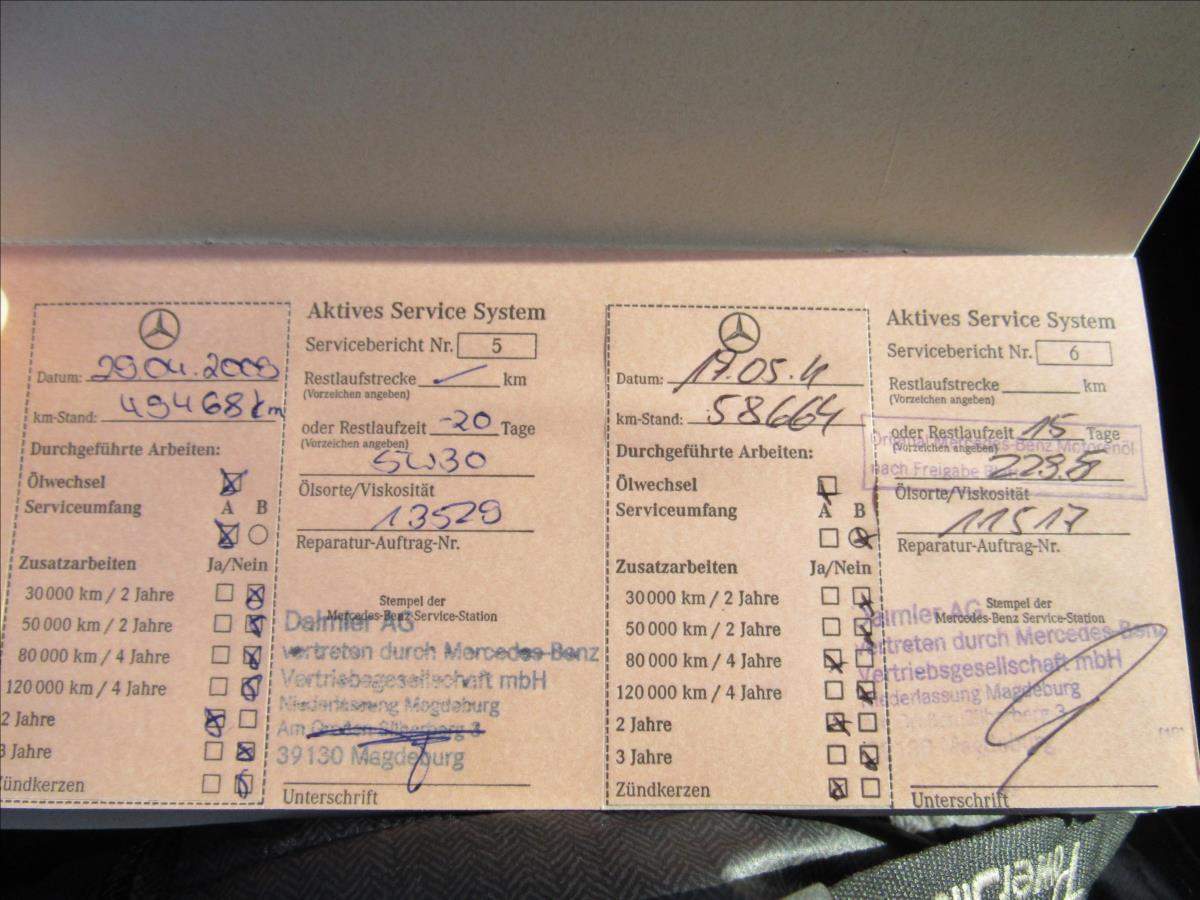 Aktives Service System
Servicebericht Nr. 5
Datum: 29.04.2009
Restlaufstrecke km
(Vorzeichen angeben)
km-Stand: 49468 km
oder Restlaufzeit -20 Tage
(Vorzeichen angeben)
Durchgeführte Arbeiten:
5W30
Ölwechsel
Ölsorte/Viskosität
Serviceumfang A B
13529
Reparatur-Auftrag-Nr.
Zusatzarbeiten Ja/Nein
30 000 km / 2 Jahre
50 000 km / 2 Jahre
80 000 km / 4 Jahre
120 000 km / 4 Jahre
2 Jahre
3 Jahre
Zündkerzen
Stempel der
Mercedes-Benz Service-Station
Daimler AG
vertreten durch Mercedes-Benz
Vertriebsgesellschaft mbH
Niederlassung Magdeburg
Am Großen Silberberg 3
39130 Magdeburg
Unterschrift
Aktives Service System
Servicebericht Nr. 6
Datum: 17.05.11
Restlaufstrecke km
(Vorzeichen angeben)
km-Stand: 58664
oder Restlaufzeit 15 Tage
(Vorzeichen angeben)
Original Mercedes-Benz Motorenöl
nach Freigabe
Durchgeführte Arbeiten:
Ölwechsel
Ölsorte/Viskosität
Serviceumfang A B
11517
Reparatur-Auftrag-Nr.
Zusatzarbeiten Ja/Nein
30 000 km / 2 Jahre
50 000 km / 2 Jahre
80 000 km / 4 Jahre
120 000 km / 4 Jahre
2 Jahre
3 Jahre
Zündkerzen
Stempel der
Mercedes-Benz Service-Station
Daimler AG
vertreten durch Mercedes-Benz
Vertriebsgesellschaft mbH
Niederlassung Magdeburg
Silberberg 3
Unterschrift